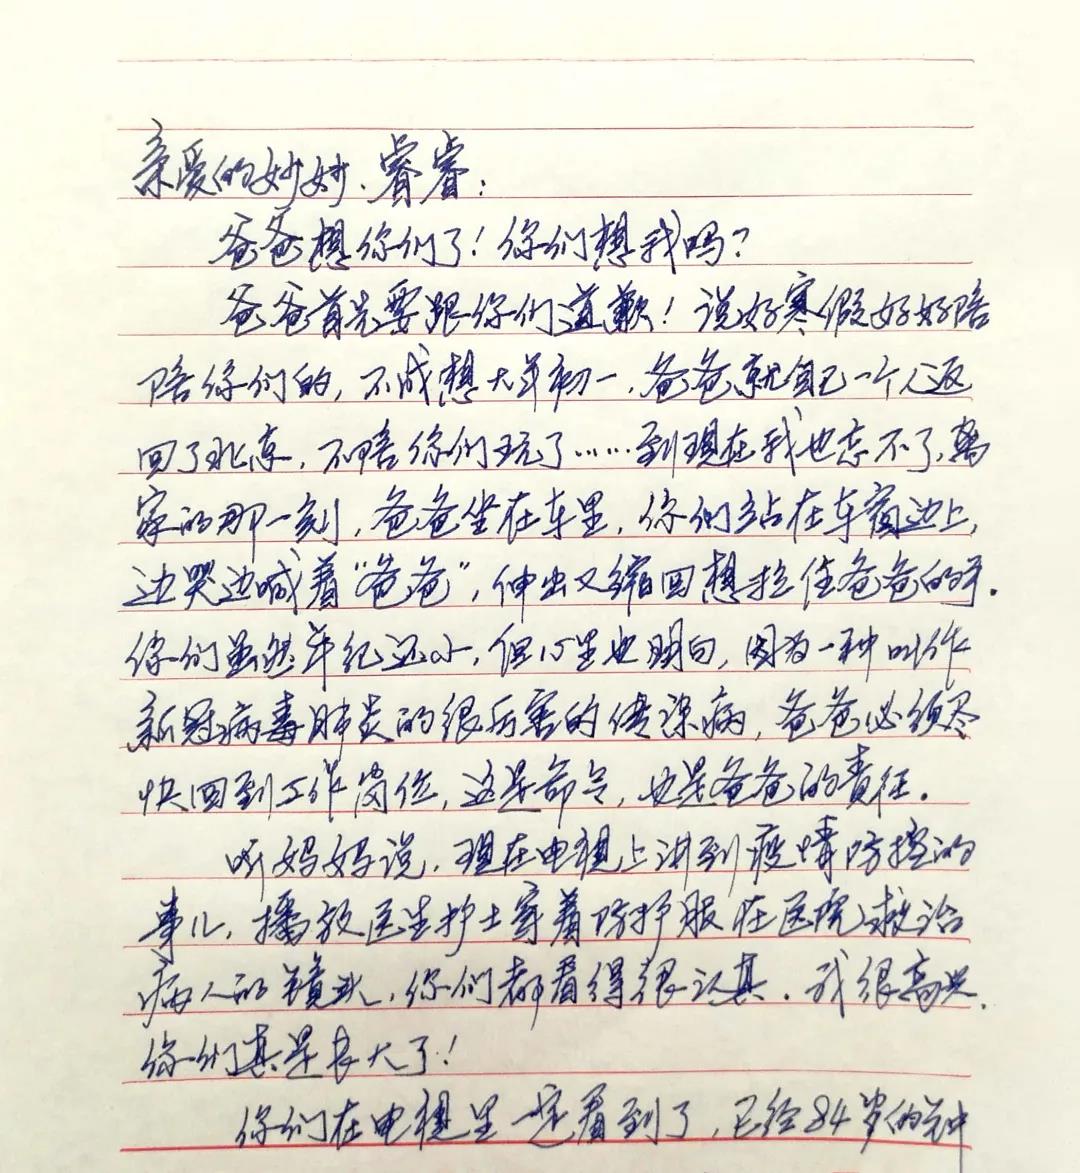 亲爱的妙妙、睿睿：
爸爸想你们了！你们想我吗？
爸爸首先要跟你们道歉！说好寒假好好陪
陪你们的，不成想大年初一，爸爸就自己一个人返
回了北京，不陪你们玩了……到现在我也忘不了，离
家的那一刻，爸爸坐在车里，你们站在车窗边上，
边哭边喊着“爸爸”，伸出又缩回想拉住爸爸的手。
你们虽然年纪还小，但心里也明白，因为一种叫作
新冠病毒肺炎的很厉害的传染病，爸爸必须尽
快回到工作岗位，这是命令，也是爸爸的责任。
听妈妈说，现在电视上讲到疫情防控的
事儿，播放医生护士穿着防护服在医院救治
病人的镜头，你们都看得很认真。我很高兴，
你们真是长大了！
你们在电视里一定看到了，已经84岁的钟